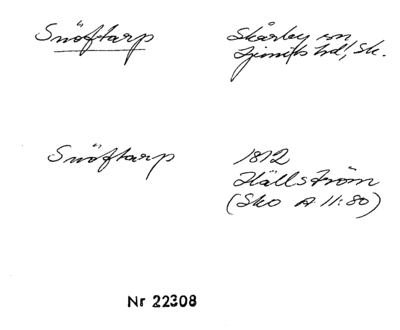 Snöftarp
Skårby sn
Ljunits hd, Sk.
Snöftarp
1812
Hällström
(Sko A 11:80)
Nr 22308